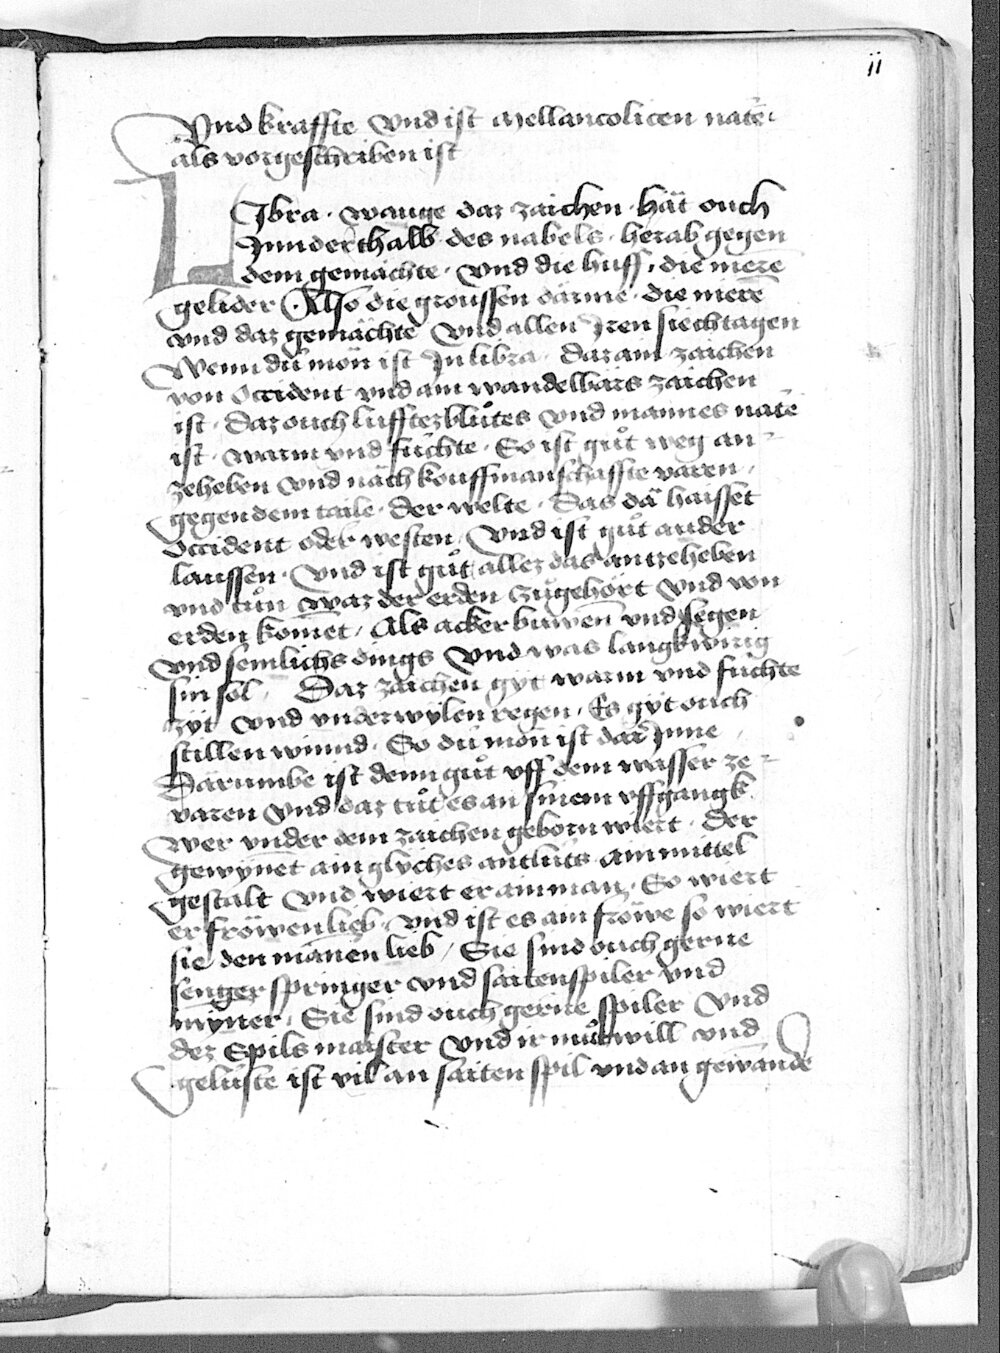 ii
Vnd kraffte vnd ist mellancolicen natē·
als vorgeschriben ist
LIbra · wauge daz zaichen · hät ouch
Jnnderthalb des nabels · herab gegen
dem gemächte · vnd die huff · die mere
gelider Also die groussen därme · die nierē
vnd daz gemächte vnd allen Jren siechtagen
Wenn dū mōn ist Jn libra · daz ain zaichen
von Occident vnd ain wandelbärs zaichen
ist · daz ouch lufftez blůtes vnd mannes natē
ist · warm vnd fūchte · So ist gůt weg an
zeheben vnd näch kouffmanschaffte varen ·
gegen dem taile · der welte · das dā haisset
Occident oder westen · vnd ist gůt ander
laussen · vnd ist gůt allez das antzeheben
vnd tůn waz der erden zůgehört vnd von
erden komēt / Als acker buwen vnd segen
vnd semlichs dings vnd was langkwirig
sin sol / Daz zaichen gyt warm vnd fūchte
zyt vnd vnderwylen regen · Es gyt ouch
stillen winnd · So dū mōn ist dar Jnne /
Därumbe ist denn gůt vff dem wasser ze
varen vnd daz tůt es an sinem vffgangk
wer vnder dem zaichen geborn wiert · der
gewynet ain glyches antlūts ain mittel
gestalt vnd wiert er ain man · So wiert
er fröwen lieb / vnd ist es ain fröwe so wiert
sie den mānen lieb / Sie sind ouch gerne
senger springer vnd saitenspiler vnd
mȳner · Sie sind ouch gerne spiler vnd
dez Spils maister vnd ir můtwill vnd
gelūste ist vil an saiten spil vnd an gewande